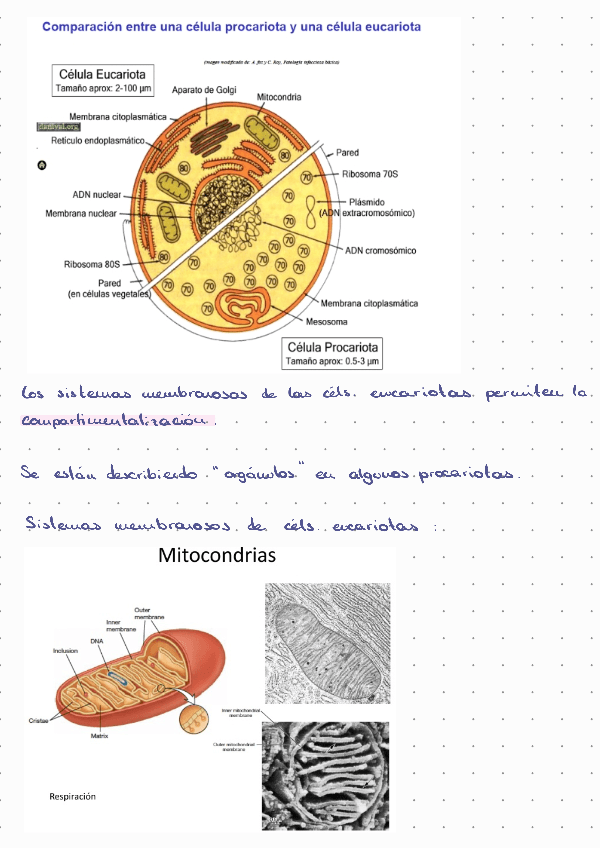 Comparación entre una célula procariota y una célula eucariota
Célula Eucariota
Tamaño aprox: 2-100 µm
Aparato de Golgi
Mitocondria
Membrana citoplasmática
Retículo endoplasmático
80
Pared
70
Ribosoma 70S
ADN nuclear
Plásmido
(ADN extracromosómico)
Membrana nuclear
ADN cromosómico
Ribosoma 80S
Pared
(en células vegetales)
Membrana citoplasmática
Mesosoma
Célula Procariota
Tamaño aprox: 0.5-3 µm
Los sistemas membranosos de las céls. eucariotas permiten la
compartimentalización.
Se están describiendo "orgánulos" en algunos procariotas.
Sistemas membranosos de céls. eucariotas :
Mitocondrias
Outer
membrane
Inner
membrane
DNA
Inclusion
Cristae
Matrix
Inner mitochondrial
membrane
Outer mitochondrial
membrane
Respiración